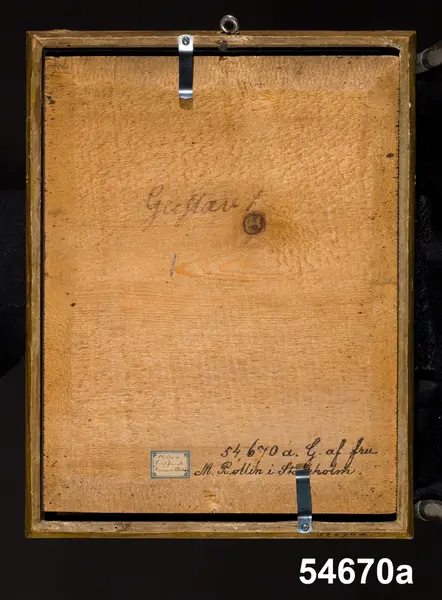 Gustav
54,670 a. G. af fru
M. Rollin i Stockholm.
54670a